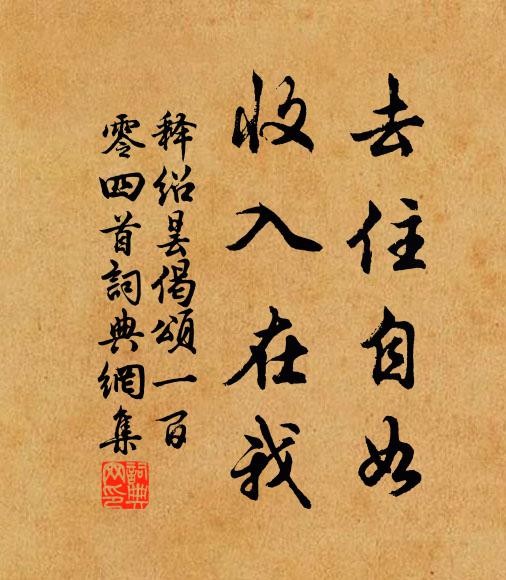 去住自如
收入在我
释绍昙偈颂一百
零四首詞典網集
詞典網印